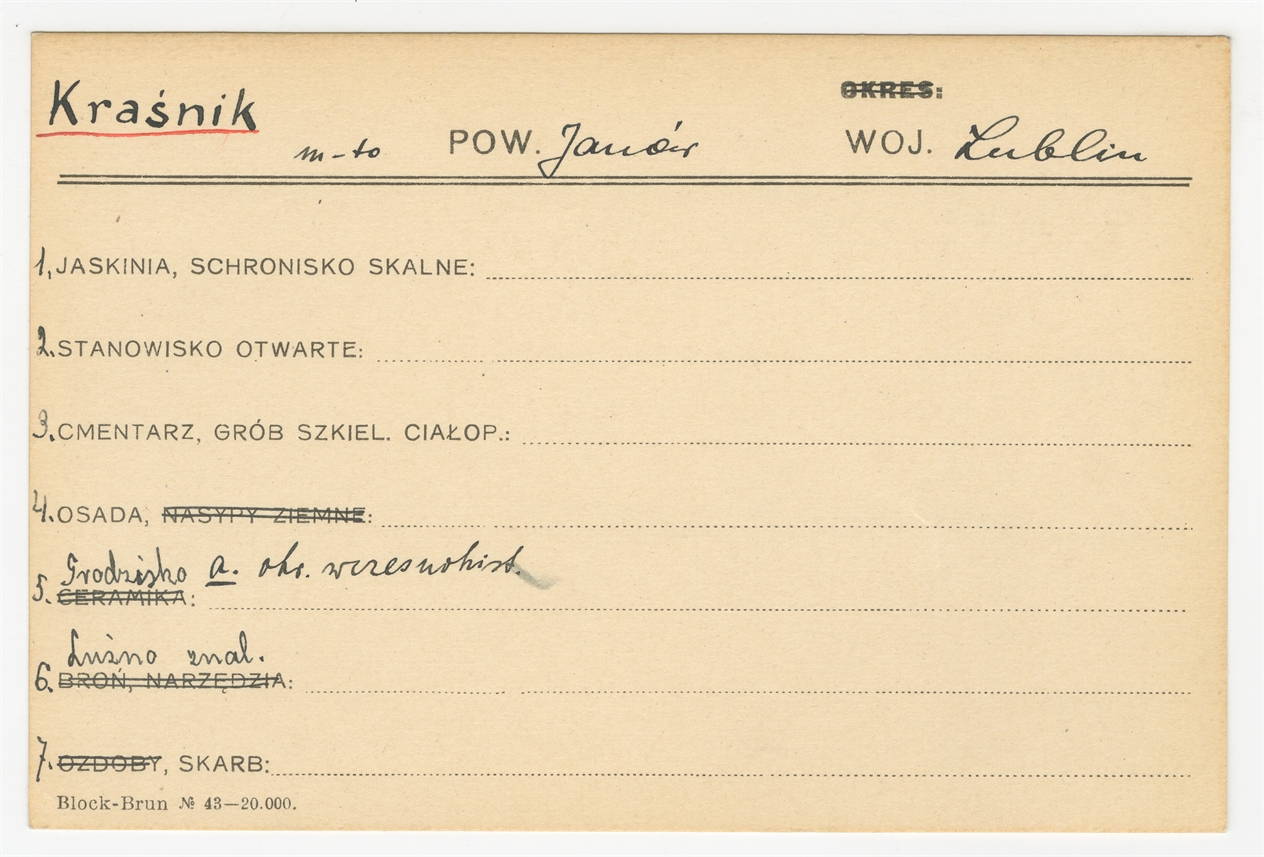 OKRES:
Kraśnik m-to POW. Janów WOJ. Lublin
1. JASKINIA, SCHRONISKO SKALNE:
2. STANOWISKO OTWARTE:
3. CMENTARZ, GRÓB SZKIEL. CIAŁOP.:
4. OSADA, NASYPY ZIEMNE:
Grodzisko a. okr. wczesnohist.
5. CERAMIKA:
Luźno znal.
6. BROŃ, NARZĘDZIA:
7. OZDOBY, SKARB:
Block-Brun № 43—20.000.